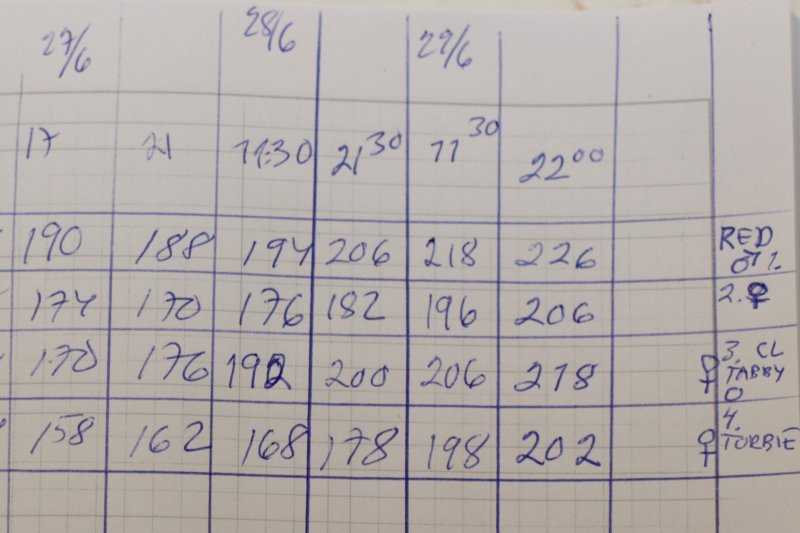 27/6 28/6 29/6
17 21 11:30 21 30 11 30 22 00
190 188 194 206 218 226 RED ♂ 1.
174 170 176 182 196 206 2. ♀
170 176 192 200 206 218 ♀ 3. CL TABBY
158 162 168 178 198 202 ♀ 4. TORBIE